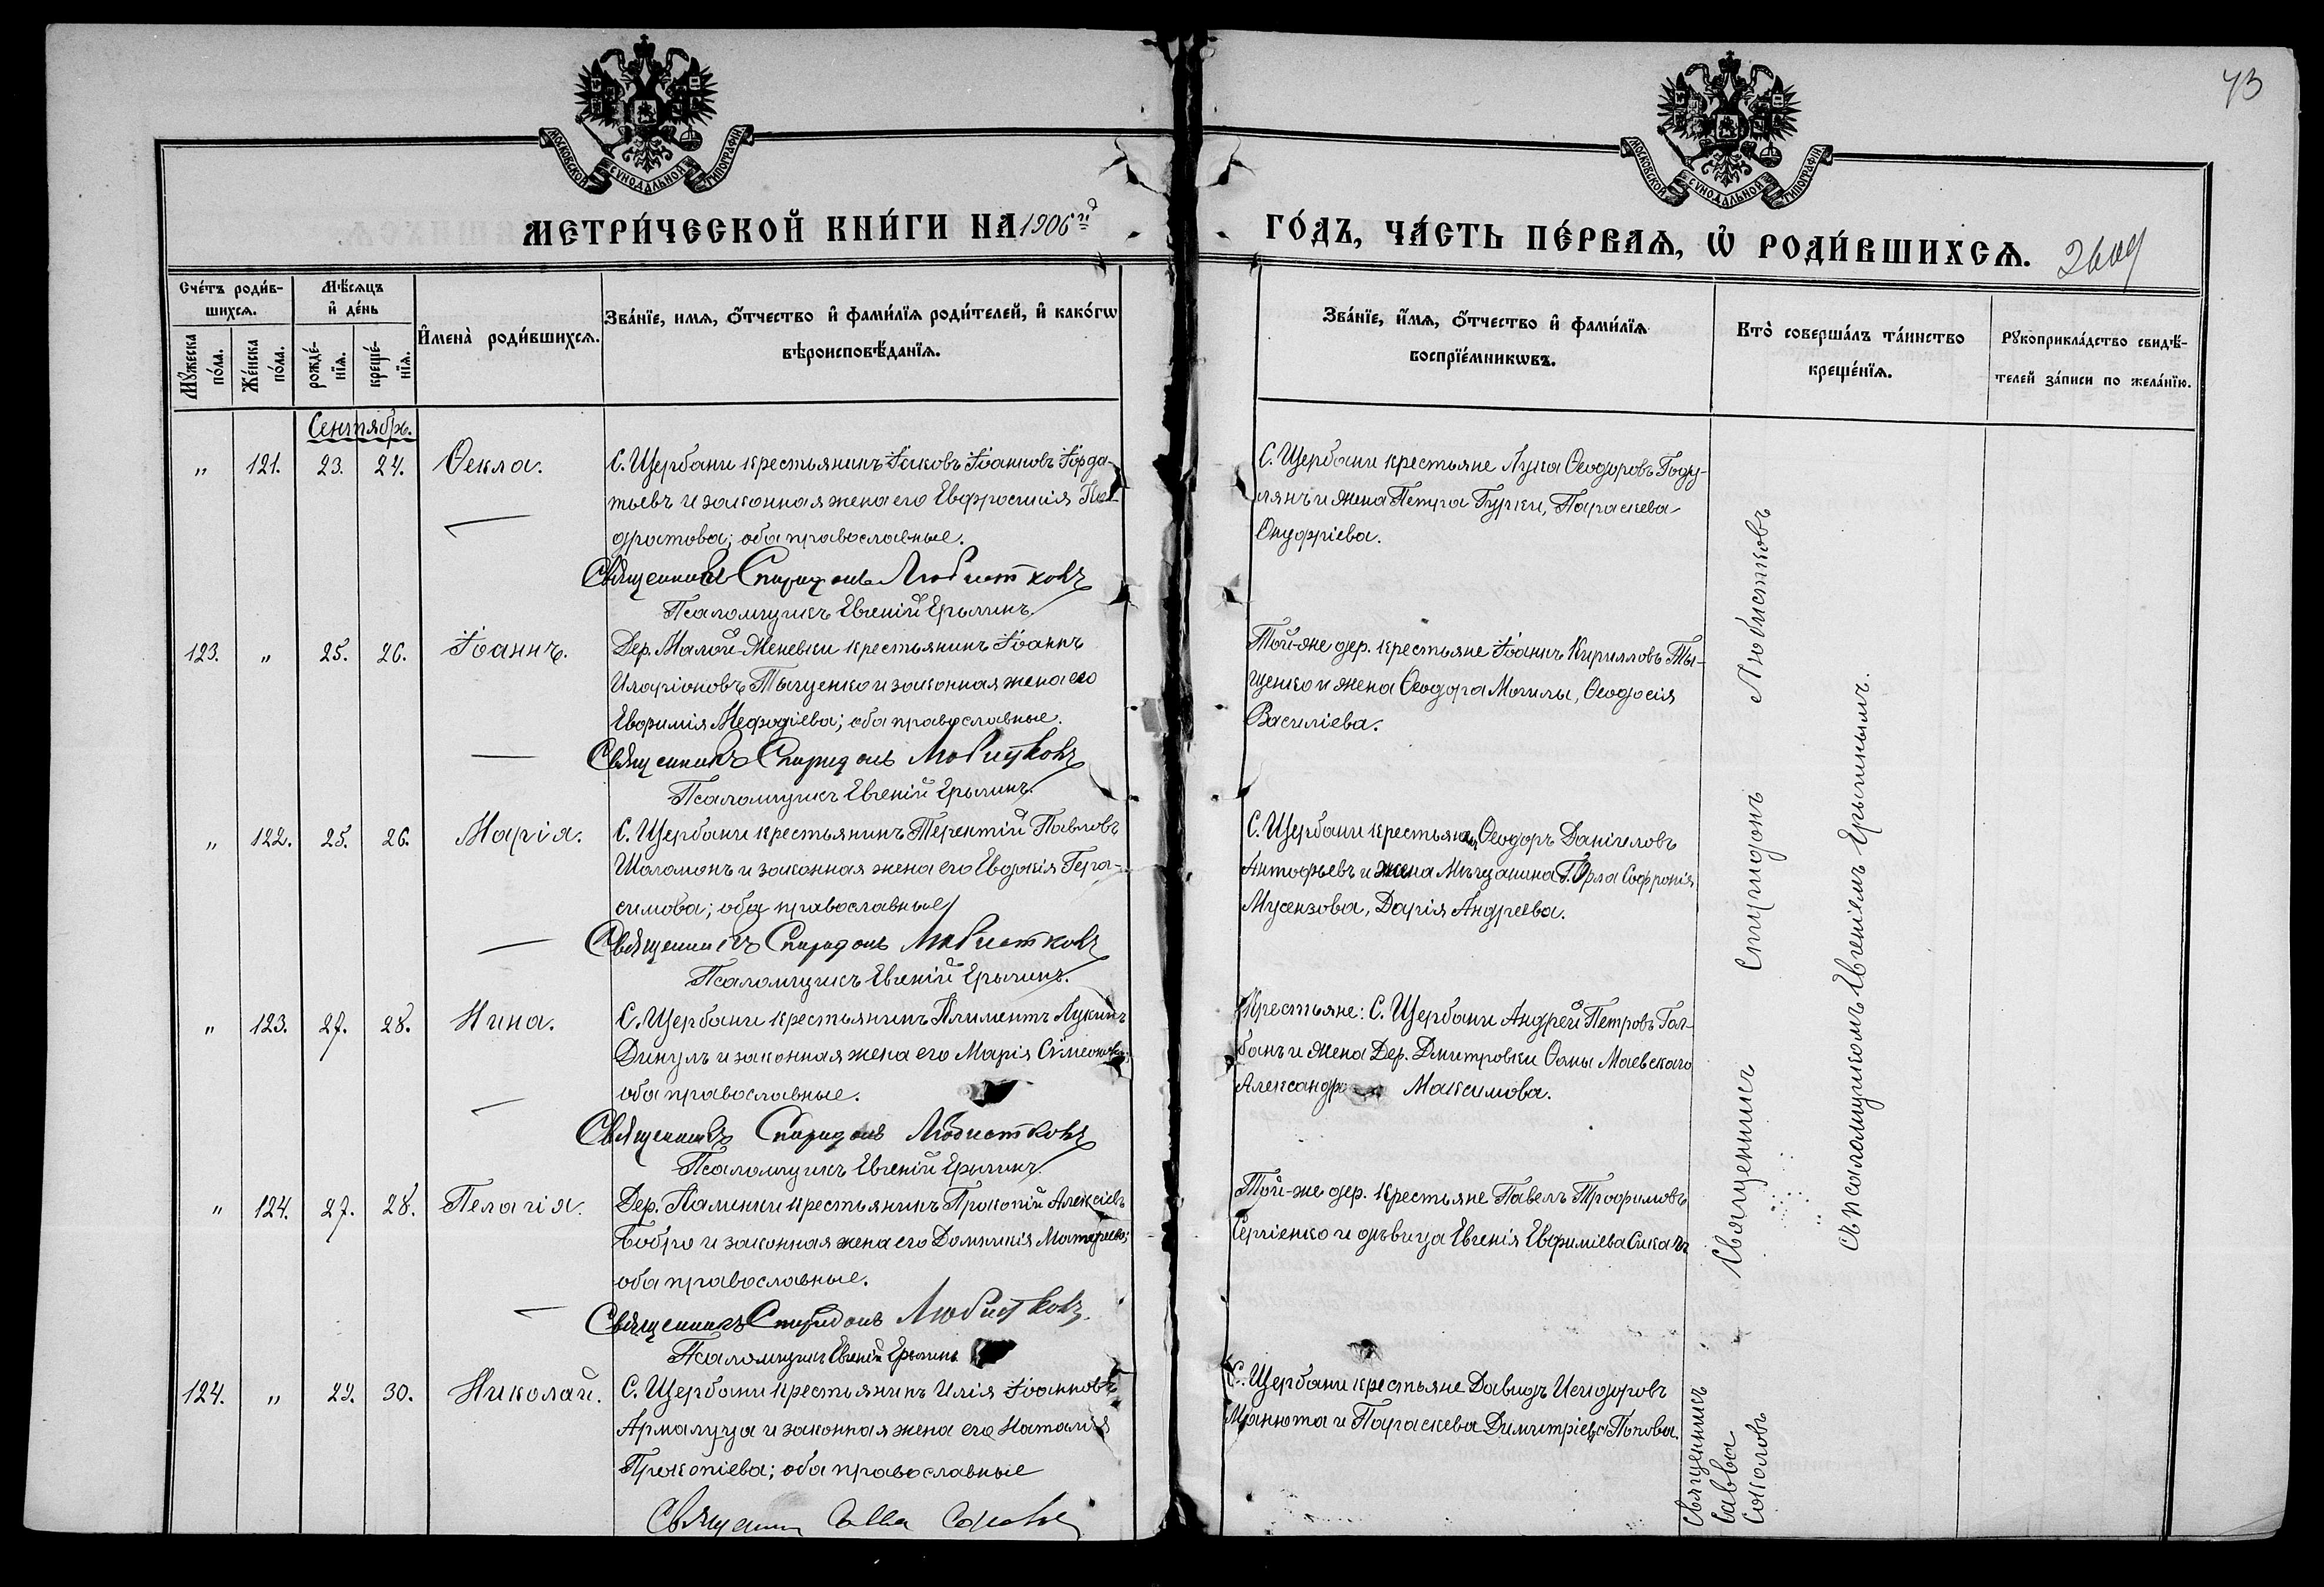 43
МОСКОВСКОЙ СѴНОДАЛЬНОЙ ТИПОГРАФІИ
МОСКОВСКОЙ СѴНОДАЛЬНОЙ ТИПОГРАФІИ
МЕТРИ́ЧЕСКОЙ КНИ́ГИ НА 1906й
ГО́ДЪ, ЧА́СТЬ ПЕ́РВАѦ, Ѡ҆ РОДИ́ВШИХСѦ.
Сче́тъ роди́в-
шихсѧ.
Мѣ́сѧцъ
и҆ де́нь
Мꙋ́жеска
по́ла.
Же́нска
по́ла.
рожде́-
нїѧ.
креще́-
нїѧ.
И҆мена̀ роди́вшихсѧ.
Зва́нїе, имѧ, о҆́тчество и҆ фами́лїѧ роди́телей, и҆ како́гѡ
вѣроисповѣ́данїѧ.
Зва́нїе, и҆́мѧ, о҆́тчество и҆ фами́лїѧ
воспрїе́мникѡвъ.
Кто̀ соверша́лъ та́инство
креще́нїѧ.
Рꙋкоприкла́дство свидѣ́-
телей за́писи по жела́нїю.
Сентябрь.
" 121. 23. 24. Ѳекла.
С. Щербани крестьянинъ Іаковъ Іоанновъ Іорда-
тьевъ и законная жена его Евфросинія
дратова; оба православные.
Священникъ Спиридонъ Любистковъ
Псаломщикъ Евгеній Ерылинъ.
С. Щербани крестьяне Лука Ѳеодоровъ Году-
лянъ и жена Петра Гурки, Параскева
Онуфріева.
123. " 25. 26. Іоаннъ.
Дер. Малой-Меневки крестьянинъ Іоаннъ
Иларіоновъ Тыщенко и законная жена его
Евфимія Меѳодіева; оба православные.
Священникъ Спиридонъ Любистковъ
Псаломщикъ Евгеній Ерылинъ.
Той-же дер. крестьяне Іоаннъ Кирилловъ Ты-
щенко и жена Ѳеодора Могилы, Ѳеодосія
Василіева.
" 122. 25. 26. Марія.
С. Щербани крестьянинъ Терентій Павловъ
Шоломонъ и законная жена его Евдокія Гера-
симова; оба православные
Священникъ Спиридонъ Любистковъ
Псаломщикъ Евгеній Ерылинъ.
С. Щербани крестьянинъ Ѳеодоръ Даніиловъ
Антофьевъ и жена Мѣщанина Г. Орла Софронія
Дарія Андреева.
" 123. 27. 28. Нина.
С. Щербани крестьянинъ Климентъ Лукинъ
Динулъ и законная жена его Марія Сѵмеонова;
оба православные.
Священникъ Спиридонъ Любистковъ
Псаломщикъ Евгеній Ерылинъ.
Крестьяне: С. Щербани Андрей Петровъ Гол-
банъ и жена Дер. Дмитровки Ѳомы Маевскаго
Александра Максимова.
" 124. 27. 28. Пелагія.
Дер. Каменки крестьянинъ Прокопій Алексіевъ
Бобро и законная жена его Домникія
оба православные.
Священникъ Спиридонъ Любистковъ
Псаломщикъ Евгеній Ерылинъ
Той-же дер. крестьяне Павелъ Трофимовъ
Сергіенко и дѣвица Евгенія Евфиміева
124. " 29. 30. Николай.
С. Щербани крестьянинъ Илія Іоанновъ
Армалуца и законная жена его Наталія
Прокопіева; оба православные
Священникъ Савва Соколовъ
С. Щербани крестьяне Давидъ Исидоровъ
Манюта и Параскева Димитріева Попова.
Священникъ Спиридонъ Любистковъ
съ псаломщикомъ Евгеніемъ Ерылинымъ.
Священникъ
Савва
Соколовъ